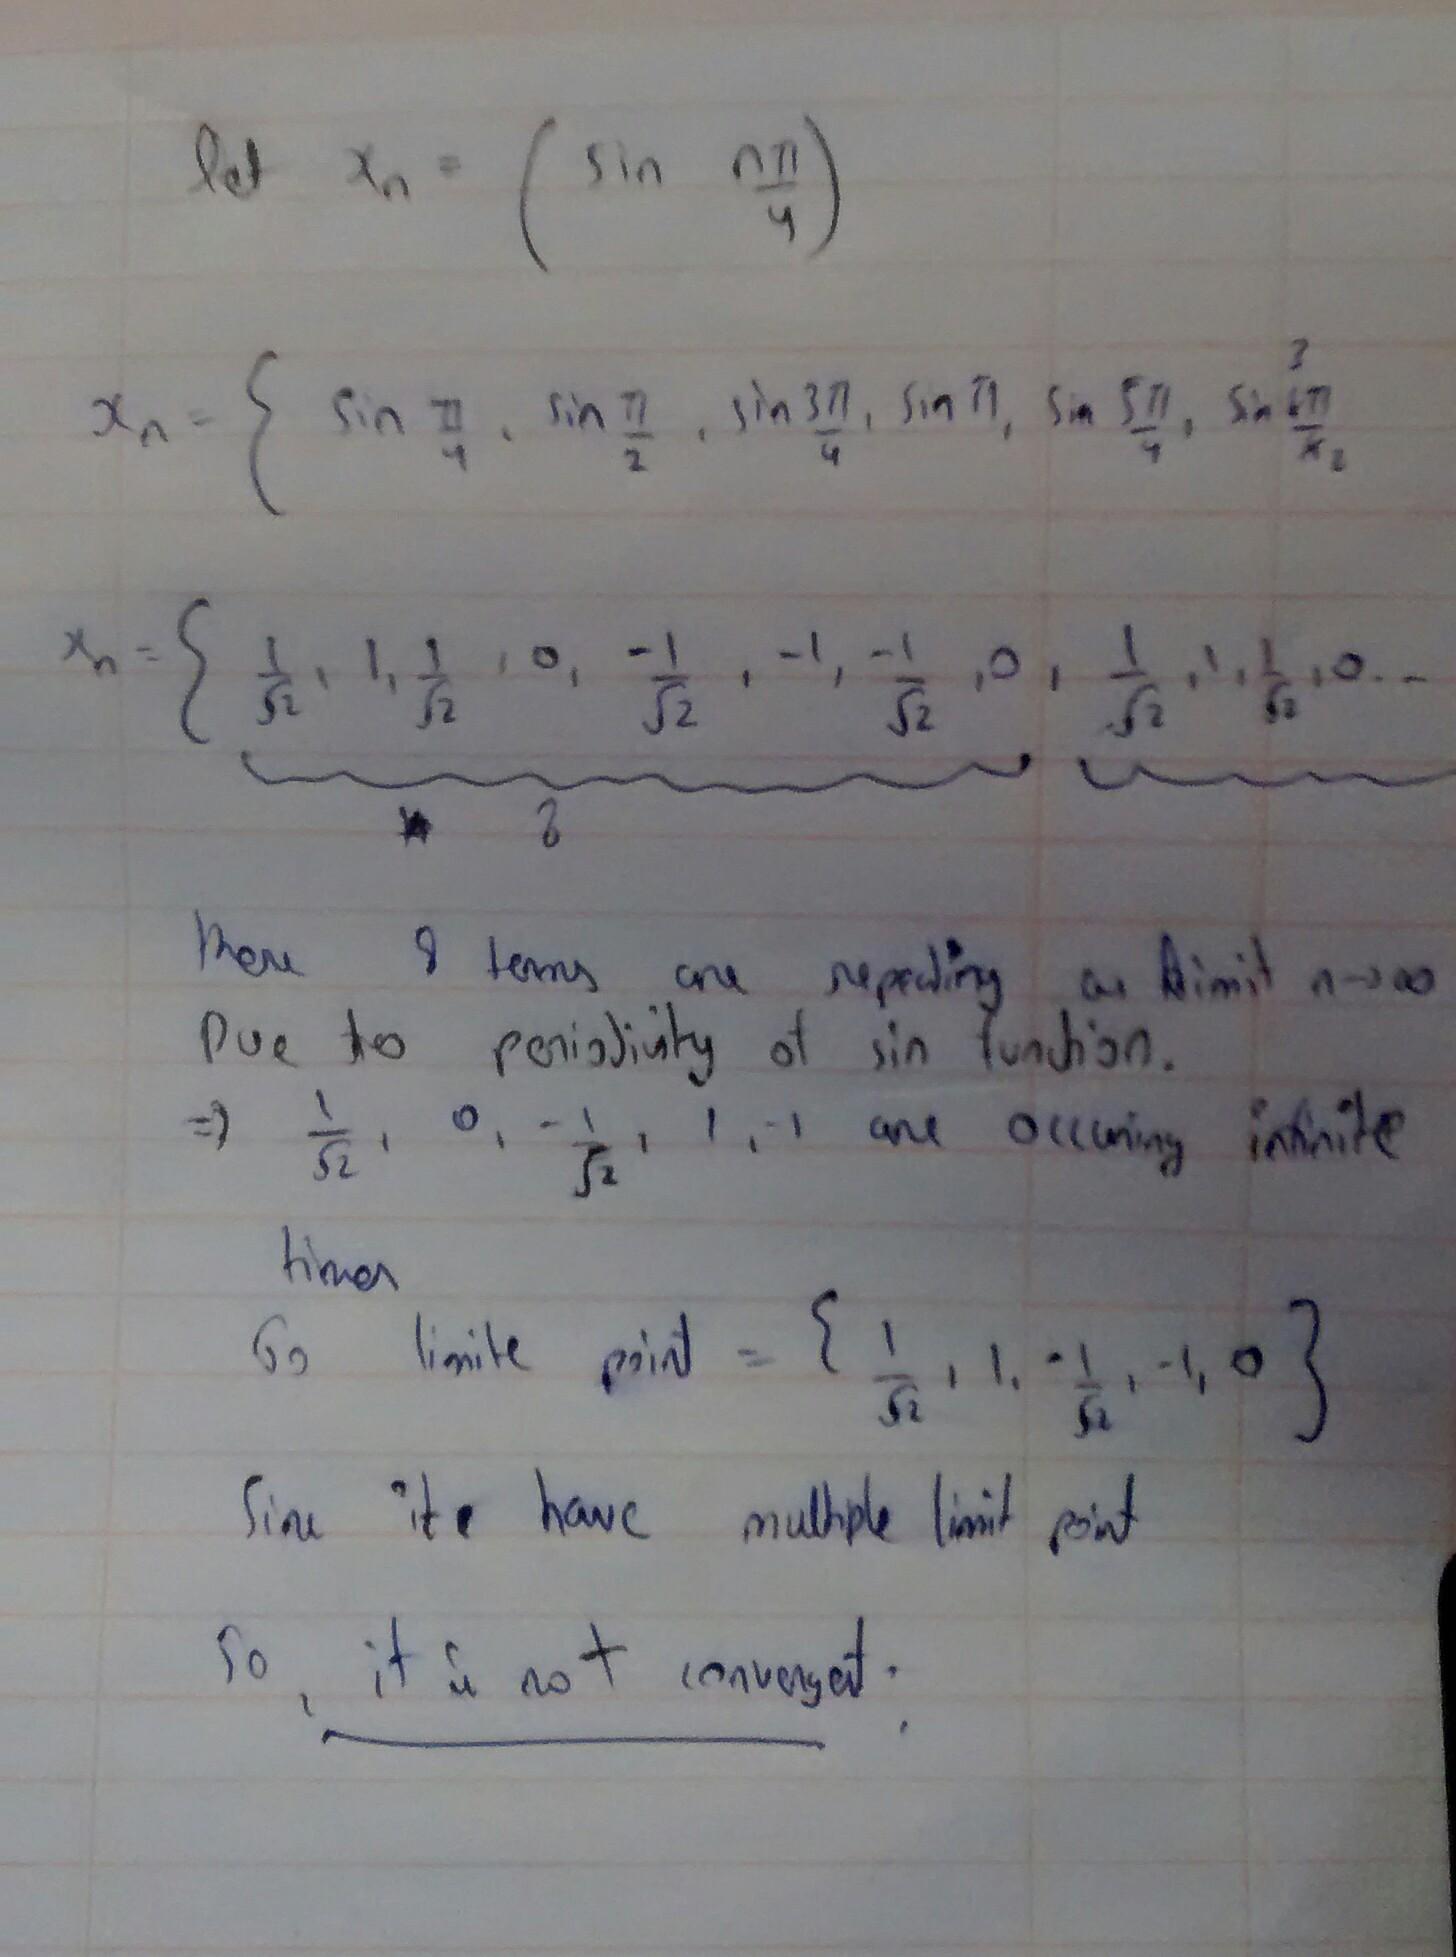 let xₙ = ( sin nπ/4 )
xₙ = { sin π/4, sin π/2, sin 3π/4, sin π, sin 5π/4, sin 3π/2
xₙ = { 1/√2, 1, 1/√2, 0, -1/√2, -1, -1/√2, 0, 1/√2, 1, 1/√2, 0...
8
there 8 terms are repeating as limit n→∞
Due to periodivity of sin function.
⇒ 1/√2, 0, -1/√2, 1, -1 are occuring infinite
times
So limite point = { 1/√2, 1, -1/√2, -1, 0 }
Sine it have multiple limit point
So, it is not convergent.